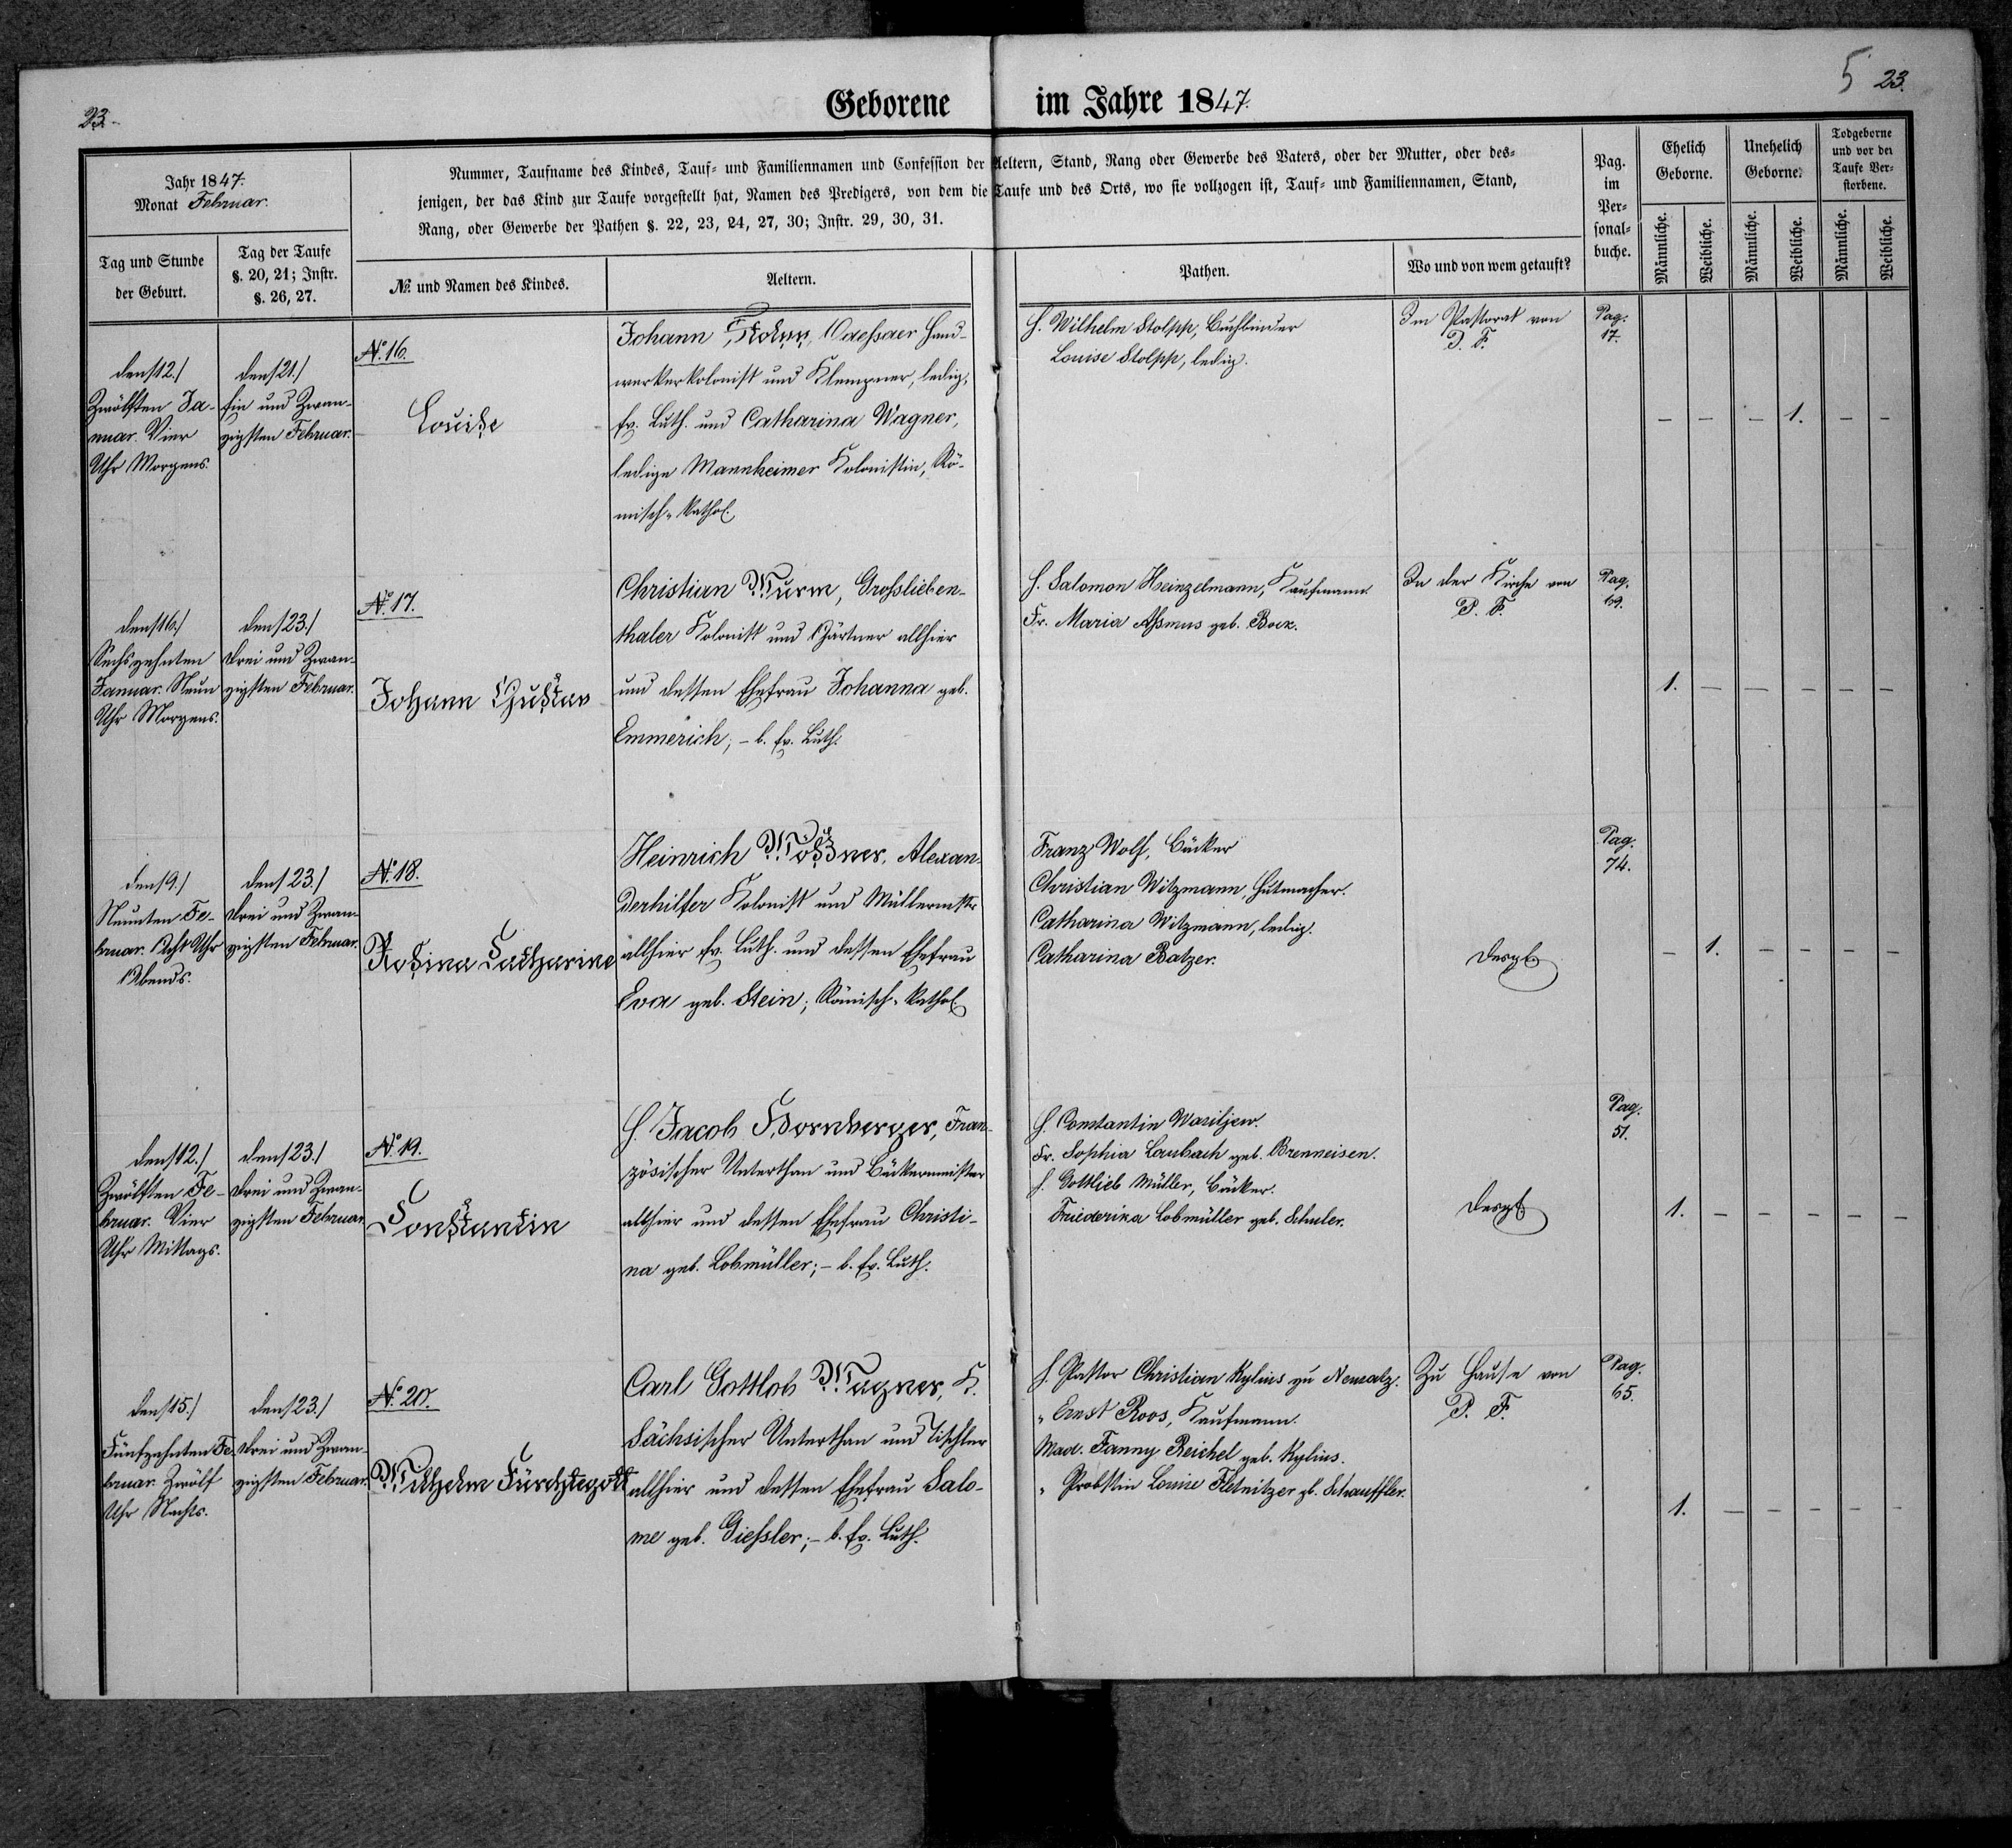 23.
Geborene im Jahre 1847.
5 23.
Jahr 1847.
Monat Februar.
Nummer, Taufname des Kindes, Tauf- und Familiennamen und Confession der Aeltern, Stand, Rang oder Gewerbe des Vaters, oder der Mutter, oder des-
jenigen, der das Kind zur Taufe vorgestellt hat, Namen des Predigers, von dem die Taufe und des Orts, wo sie vollzogen ist, Tauf- und Familiennamen, Stand,
Rang, oder Gewerbe der Pathen §. 22, 23, 24, 27, 30; Instr. 29, 30, 31.
Tag und Stunde
der Geburt.
Tag der Taufe
§. 20, 21; Instr.
§. 26, 27.
№ und Namen des Kindes.
Aeltern.
Pathen.
Wo und von wem getauft?
Pag.
im
Per-
sonal-
buche.
Ehelich
Geborne.
Unehelich
Geborne.
Todgeborne
und vor der
Taufe Ver-
storbene.
Männliche.
Weibliche.
Männliche.
Weibliche.
Männliche.
Weibliche.
den /12./
Zwölften Ja-
nuar. Vier
Uhr Morgens.
den /21./
Ein und Zwan-
zigsten Februar.
№. 16.
Louise
Johann Odessaer Hand-
werkerkolonist und Klempner, ledig,
Ev. Luth. und Catharina Wagner,
ledige Mannheimer Kolonistin, Rö-
misch-Kathol.
H. Wilhelm Stolpp, Buchbinder
Louise Stolpp, ledig.
Im Pastorat von
P. F.
Pag.
17.
– – – 1. – –
den /16./
Sechszehnten
Januar. Neun
Uhr Morgens.
den /23./
Drei und Zwan-
zigsten Februar.
№. 17.
Johann Gustav
Christian Wurm, Grosslieben-
thaler Kolonist und Gärtner allhier
und dessen Ehefrau Johanna geb.
Emmerich; – b. Ev. Luth.
H. Salomon Heinzelmann, Kaufmann.
Fr. Maria Assmus geb. Bock.
In der Kirche von
P. F.
Pag.
69.
1. – – – – –
den /9./
Neunten Fe-
bruar. Acht Uhr
Abends.
den /23./
Drei und Zwan-
zigsten Februar.
№. 18.
Rosina Catharine
Heinrich Alexan-
derhilfer Kolonist und Müllermstr
allhier Ev. Luth. und dessen Ehefrau
Eva geb. Stein; Römisch-Kathol.
Franz Wolf, Bäcker
Christian Witzmann, Hutmacher.
Catharina Witzmann, ledig.
Catharina Batzer.
Desgl.
Pag.
74.
– 1. – – – –
den /12./
Zwölften Fe-
bruar. Vier
Uhr Mittags.
den /23./
Drei und Zwan-
zigsten Februar.
№. 19.
Constantin
H. Jacob Hornberger, Fran-
zösischer Unterthan und Bäckermeister
allhier und dessen Ehefrau Christi-
na geb. Lobmüller; – b. Ev. Luth.
H. Constantin Wasiljew.
Fr. Sophia Laubach geb. Brenneisen.
H. Gottlieb Müller, Bäcker.
Friederika Lobmüller geb. Schuler.
Desgl.
Pag.
51.
1. – – – – –
den /15./
Fünfzehnten Fe-
bruar. Zwölf
Uhr Nachts.
den /23./
Drei und Zwan-
zigsten Februar.
№. 20.
Wilhelm Fürchtegott
Carl Gottlob Wagner, K.
Sächsischer Unterthan und Tischler
allhier und dessen Ehefrau Salo-
me geb. Giessler; – b. Ev. Luth.
H. Pastor Christian Kylius zu Neusatz.
" Ernst Roos, Kaufmann.
Mad. Fanny Reichel geb. Kylius.
" Probstin Louise Fletnitzer gb. Schauffler.
Zu Hause von
P. F.
Pag.
65.
1. – – – – –